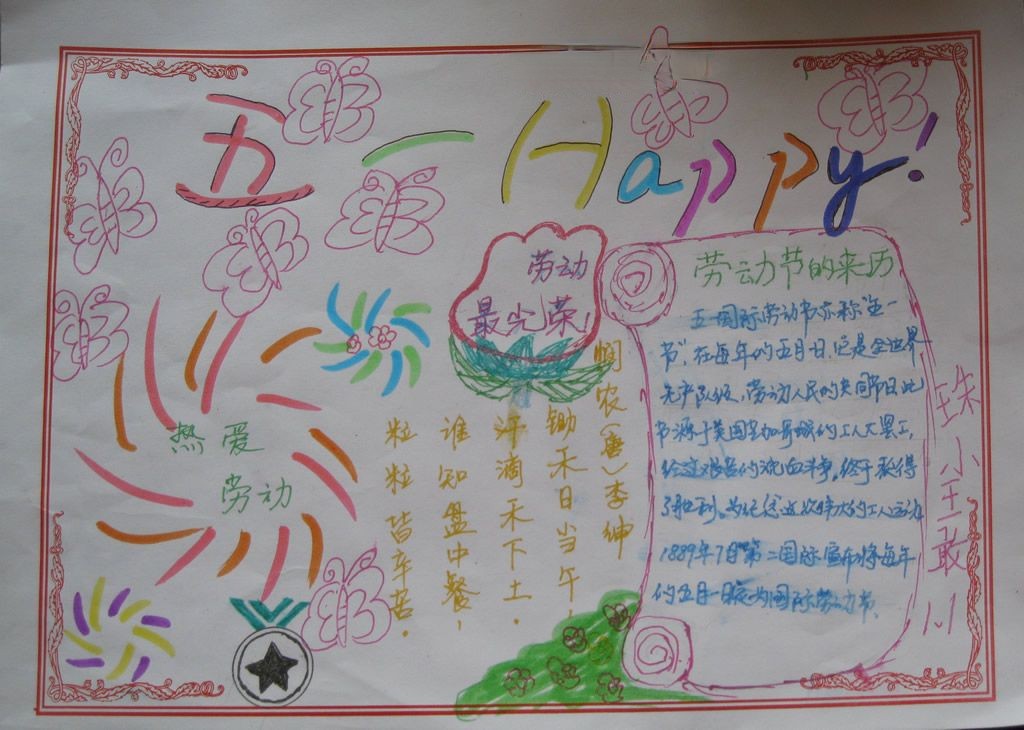 五一 Happy!
劳动
最光荣!
劳动节的来历
五一国际劳动节亦称“五一
节”,在每年的五月一日.它是全世界
无产阶级、劳动人民的共同节日.此
节源于美国芝加哥城的工人大罢工,
经过艰苦的流血斗争,终于获得
了胜利.为纪念这次伟大的工人运动
1889年7月第二国际宣布将每年
的五月一日定为国际劳动节.
悯农(唐)李绅
锄禾日当午,
汗滴禾下土.
谁知盘中餐,
粒粒皆辛苦.
热爱
劳动
珠小 王敢 1.1